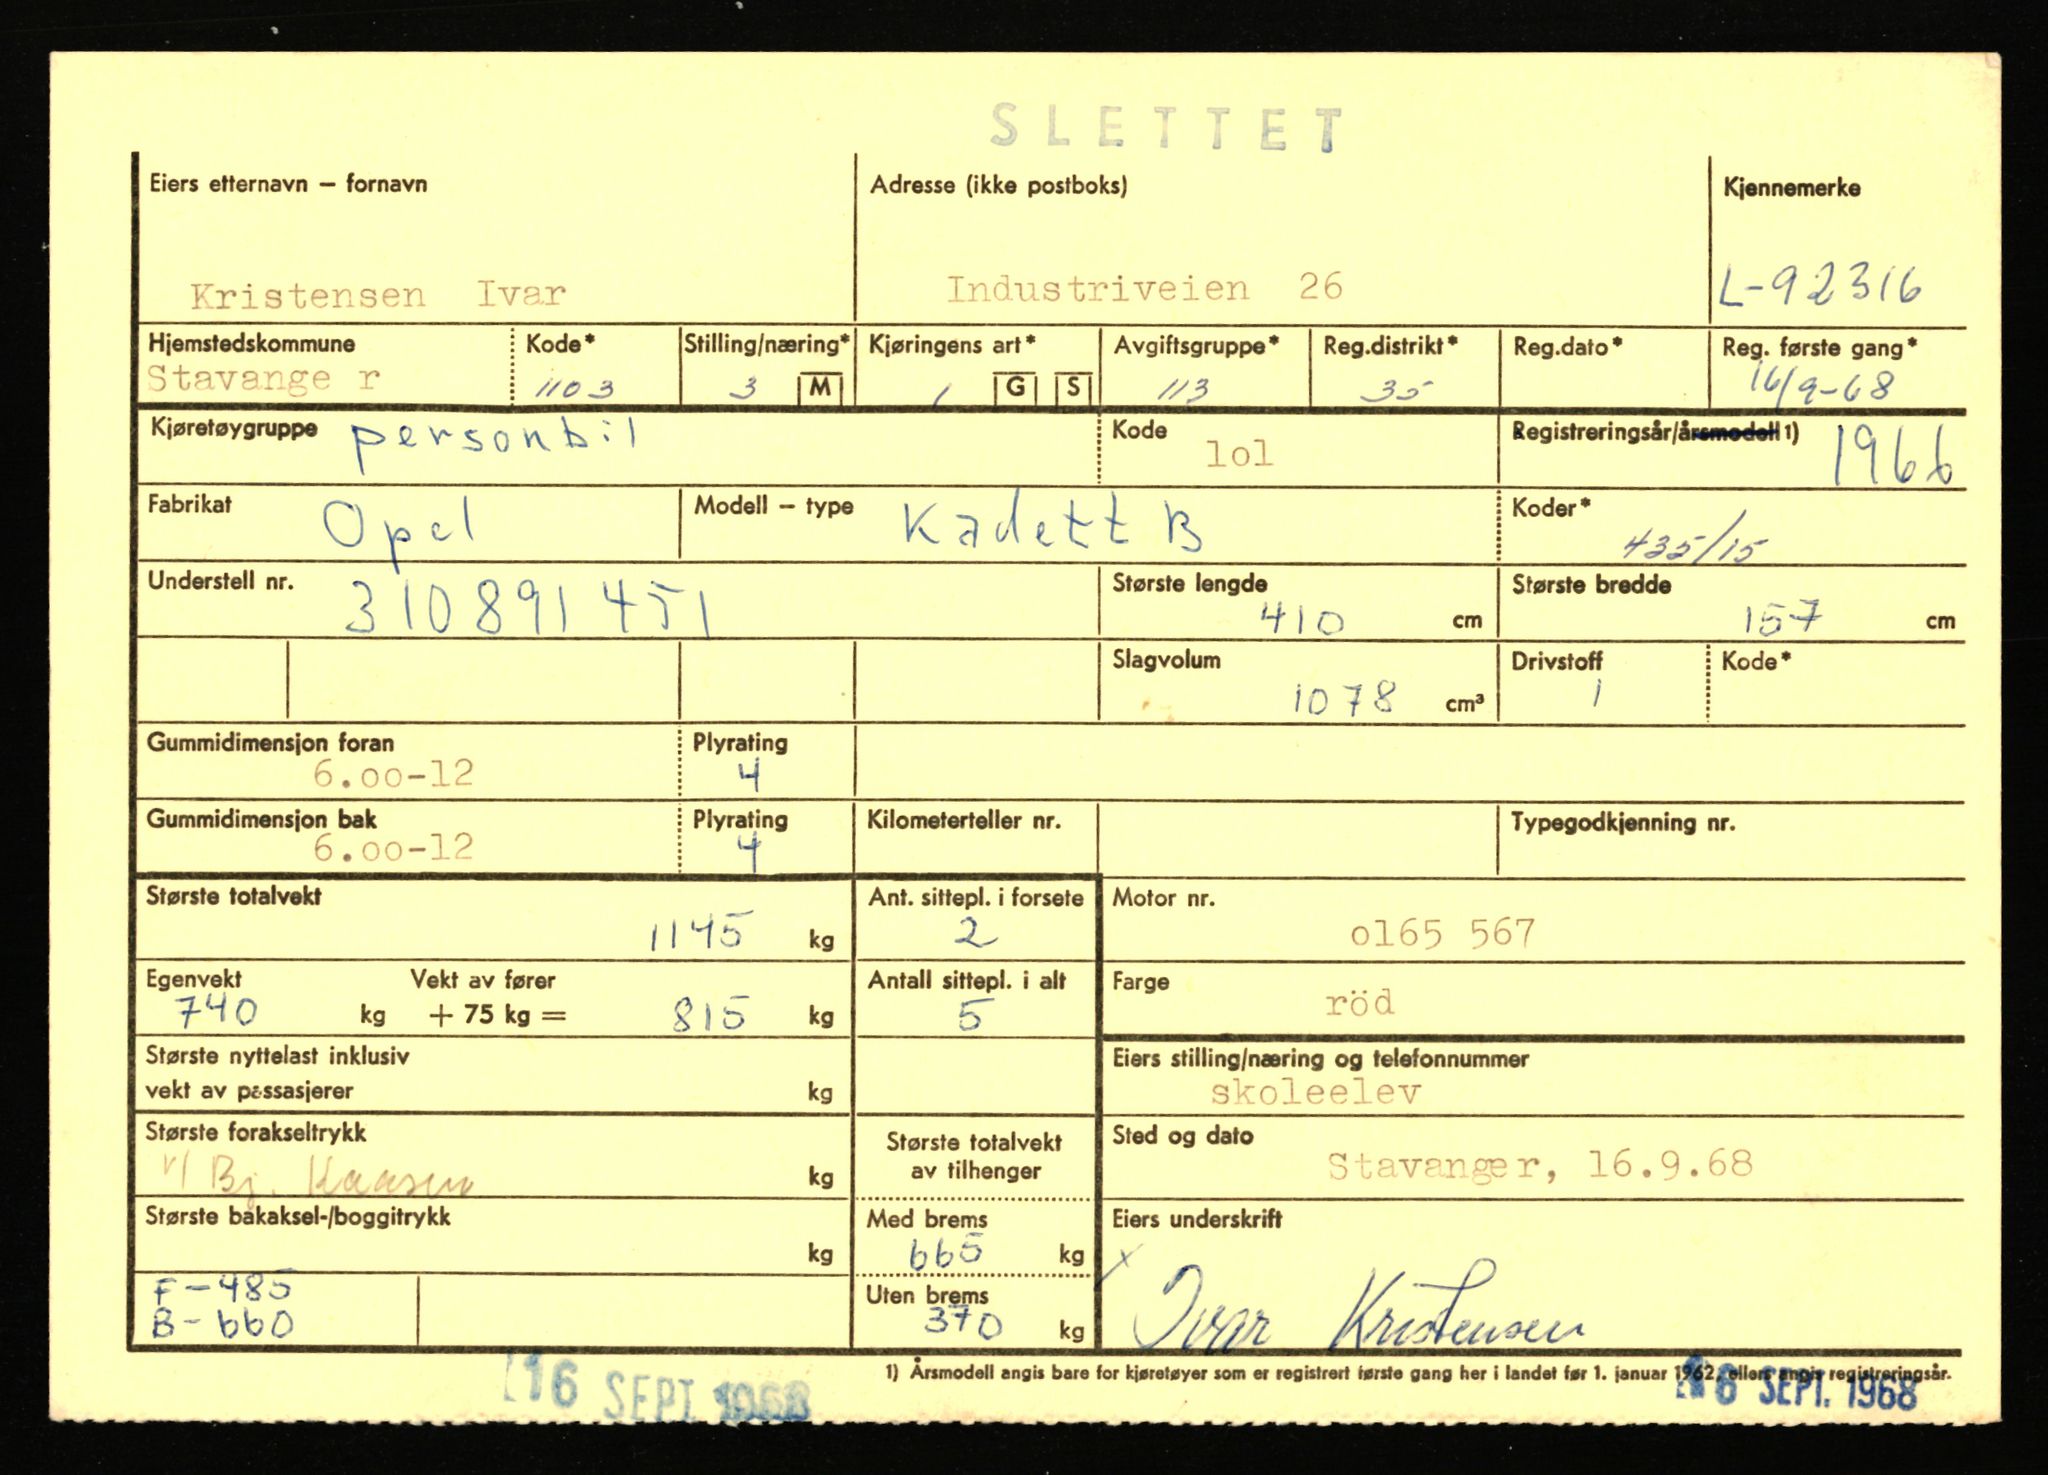 SLETTET
Eiers etternavn – fornavn
Adresse (ikke postboks)
Kjennemerke
Kristensen Ivar
Industriveien 26
L-92316
Hjemstedskommune
Kode*
Stilling/næring*
Kjøringens art*
Avgiftsgruppe*
Reg.distrikt*
Reg.dato*
Reg. første gang*
Stavange r
1103
3 M
1 G S
113
35
16/9-68
Kjøretøygruppe personbil
Kode
lol
Registreringsår/årsmodell 1) 1966
Fabrikat Opel
Modell – type Kadett B
Koder*
435/15
Understell nr. 310891451
Største lengde
410 cm
Største bredde
157 cm
Slagvolum
1078 cm³
Drivstoff
1
Kode*
Gummidimensjon foran
6.oo-12
Plyrating
4
Gummidimensjon bak
6.oo-12
Plyrating
4
Kilometerteller nr.
Typegodkjenning nr.
Største totalvekt
1145 kg
Ant. sittepl. i forsete
2
Motor nr.
o165 567
Egenvekt
740 kg
Vekt av fører
+ 75 kg = 815 kg
Antall sittepl. i alt
5
Farge
röd
Største nyttelast inklusiv
vekt av passasjerer kg
Eiers stilling/næring og telefonnummer
skoleelev
Største forakseltrykk
v/ Bj. Kaasen kg
Største totalvekt
av tilhenger
Sted og dato
Stavanger, 16.9.68
Største bakaksel-/boggitrykk
kg
Med brems
665 kg
Eiers underskrift
x
Ivar Kristensen
F-485
B-660
Uten brems
370 kg
1) Årsmodell angis bare for kjøretøyer som er registrert første gang her i landet før 1. januar 1962, ellers angis registreringsår.
16 SEPT. 1968
16 SEPT. 1968